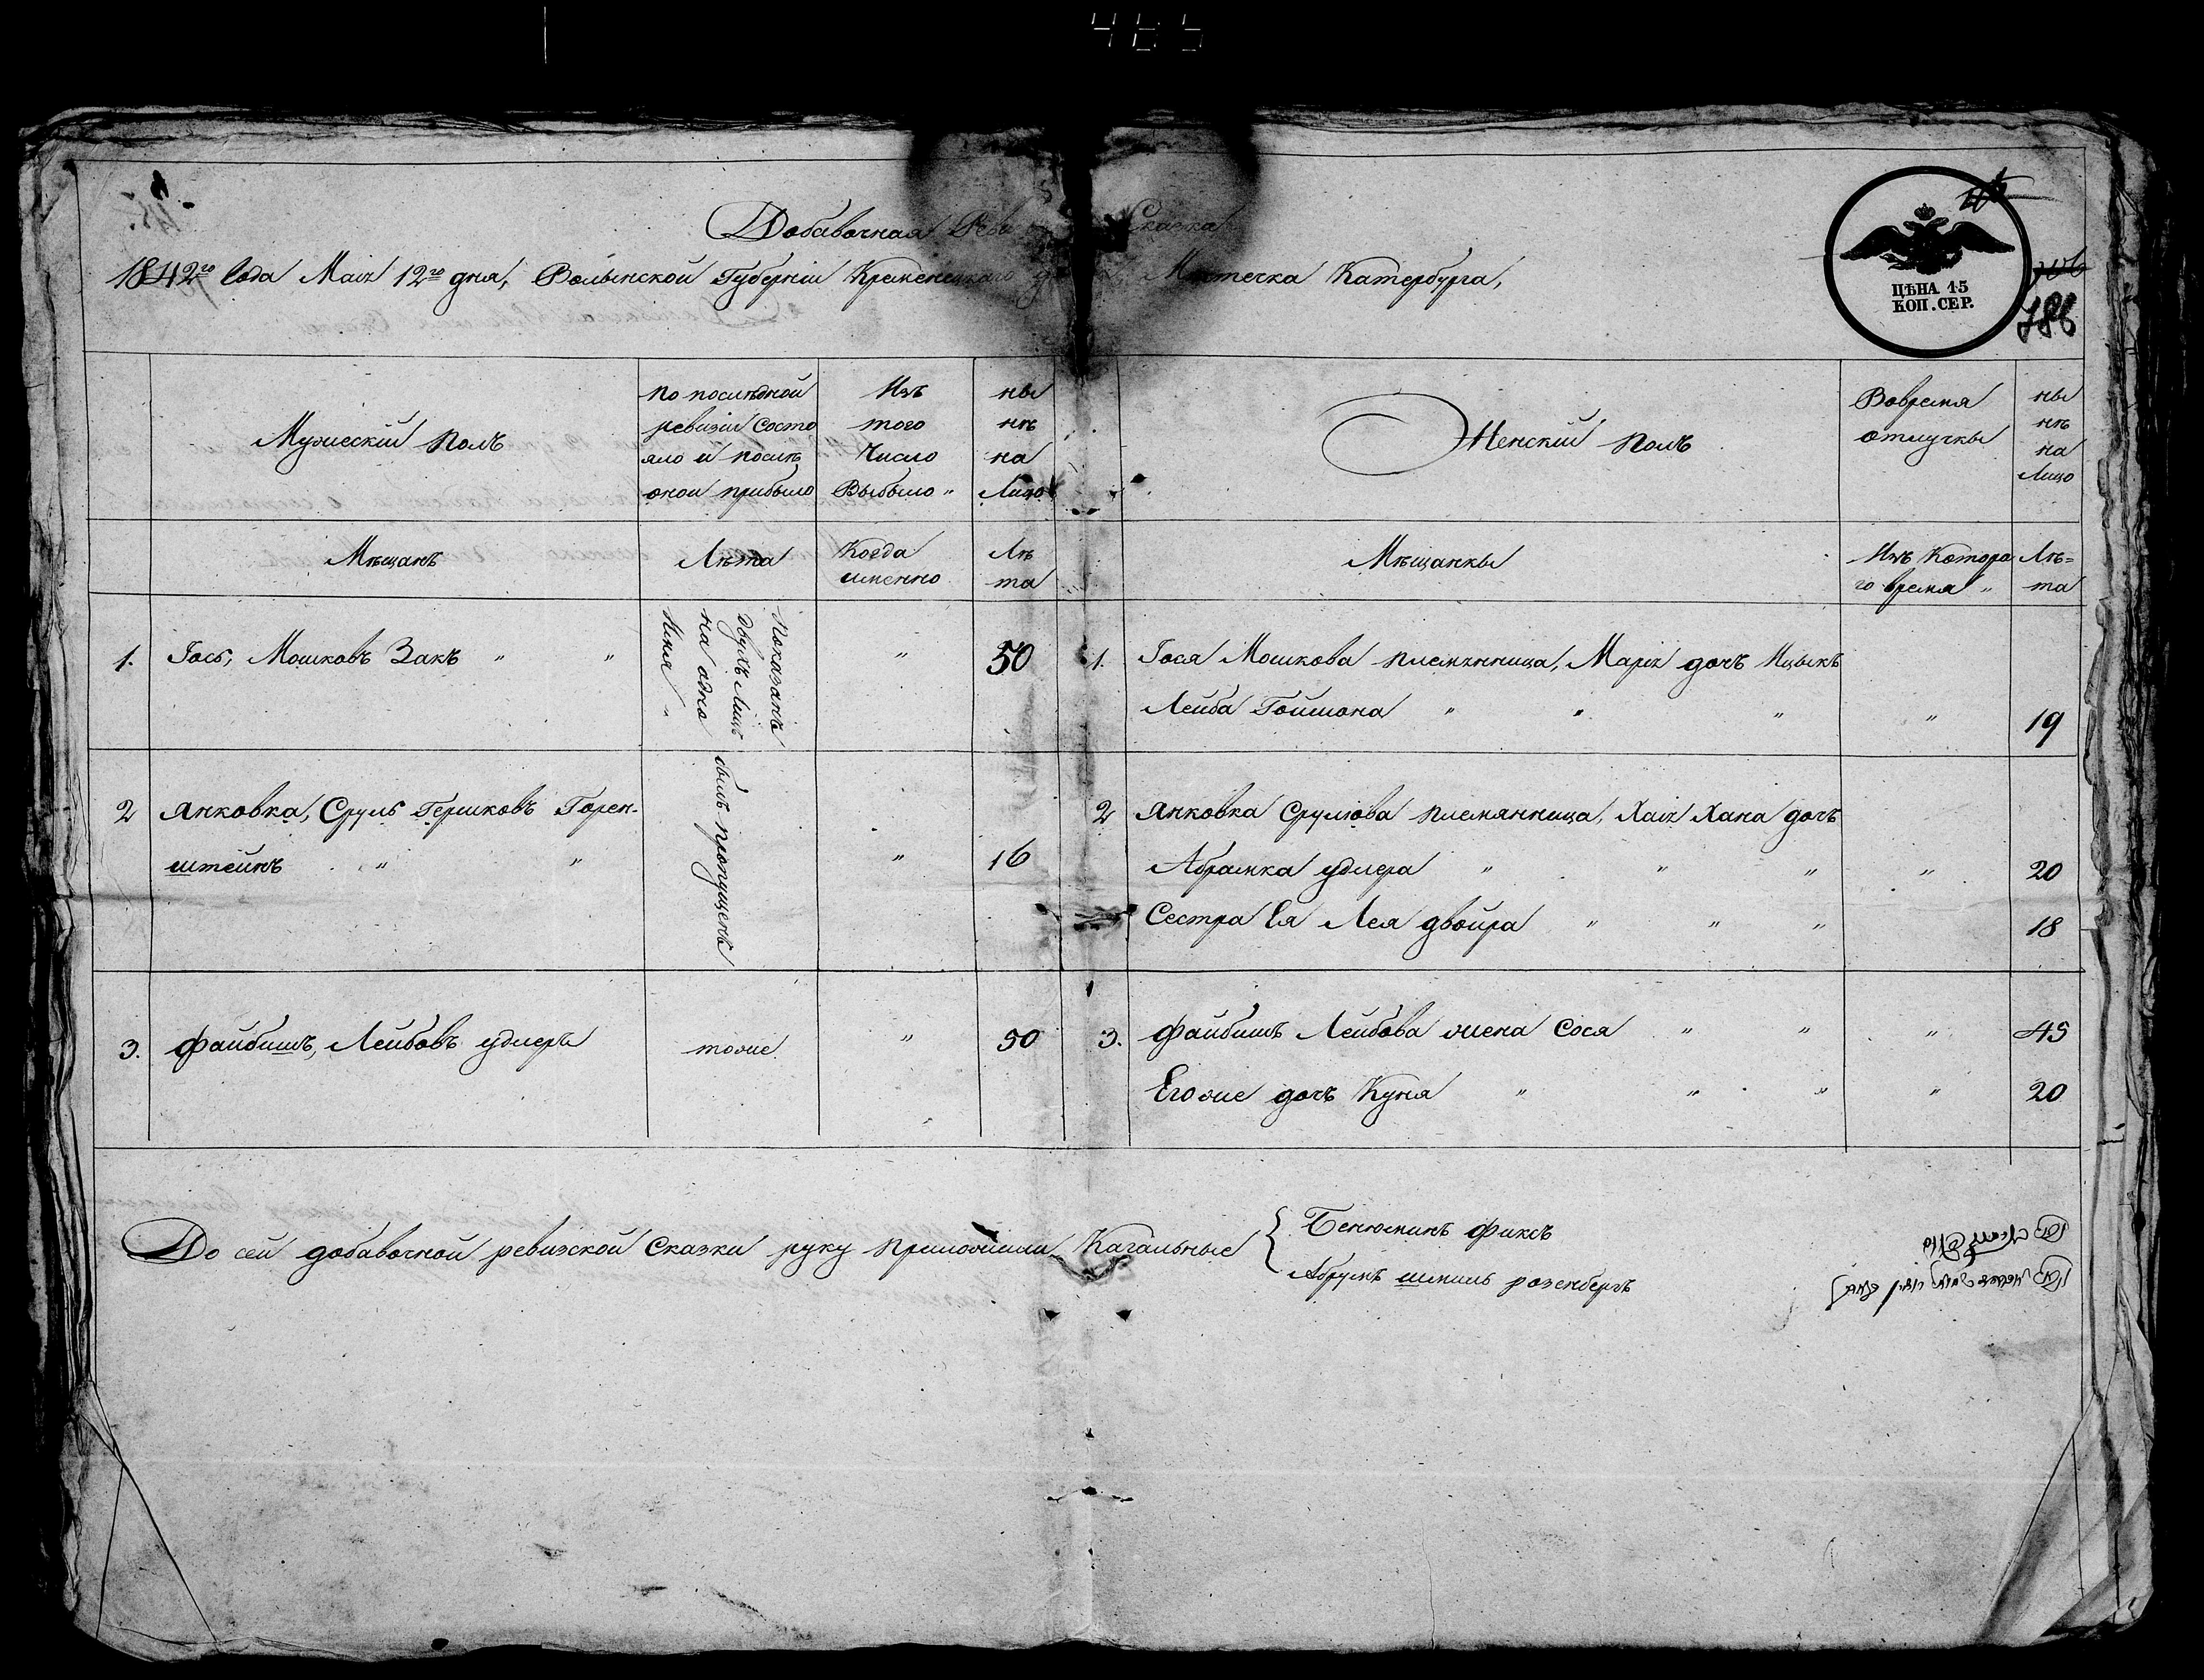 465
Добавочная Реви Сказка
1842го года Маія 12го дня, Волынской Губерніи Кременецкаго у Мѣстечка Катербурга,
ЦѢНА 15
КОП. СЕР.
786
Мужескій полъ
по послѣдной
ревизіи состо
яло и послѣ
оной прибыло
Изъ
того
Число
Выбыло „
ны
нѣ
на
Лицо
Женскій полъ
Вовремя
отлучкы
ны
нѣ
на
Лицо
Мѣщанъ
Лѣта
Когда
именно
Лѣ
та
Мѣщанкы
Изъ Которо
го время „
Лѣ=
та
1. Іось, Мошковъ Закъ „ „
Показанъ
двухъ Лицъ
на одно
Имя „
„
50
1. Іося Мошкова племянница, Марія дочъ Ицыкъ
Лейба Гойшона „ „ „ „ 19
2 Янковка, Сруль Гершковъ Горен-
штейнъ „ „
былъ пропущенъ
„ 16
2 Янковка Срулюва племянница, Хаія Хана дочъ
Абрамка удлера „ „ „ „ 20
Сестра Ея Лея двойра „ „ „ 18
3. Файбишъ, Лейбовъ удлеръ
тоже
„ 50
3. Файбишъ Лейбова жена Сося „ „ „ 45
Егоже дочъ Куня „ „ „ „ 20
До сей добавочной ревизской Сказки руку приложили Кагальные
Бенюминъ Фиксъ
Абрумъ шмиль розенбергъ